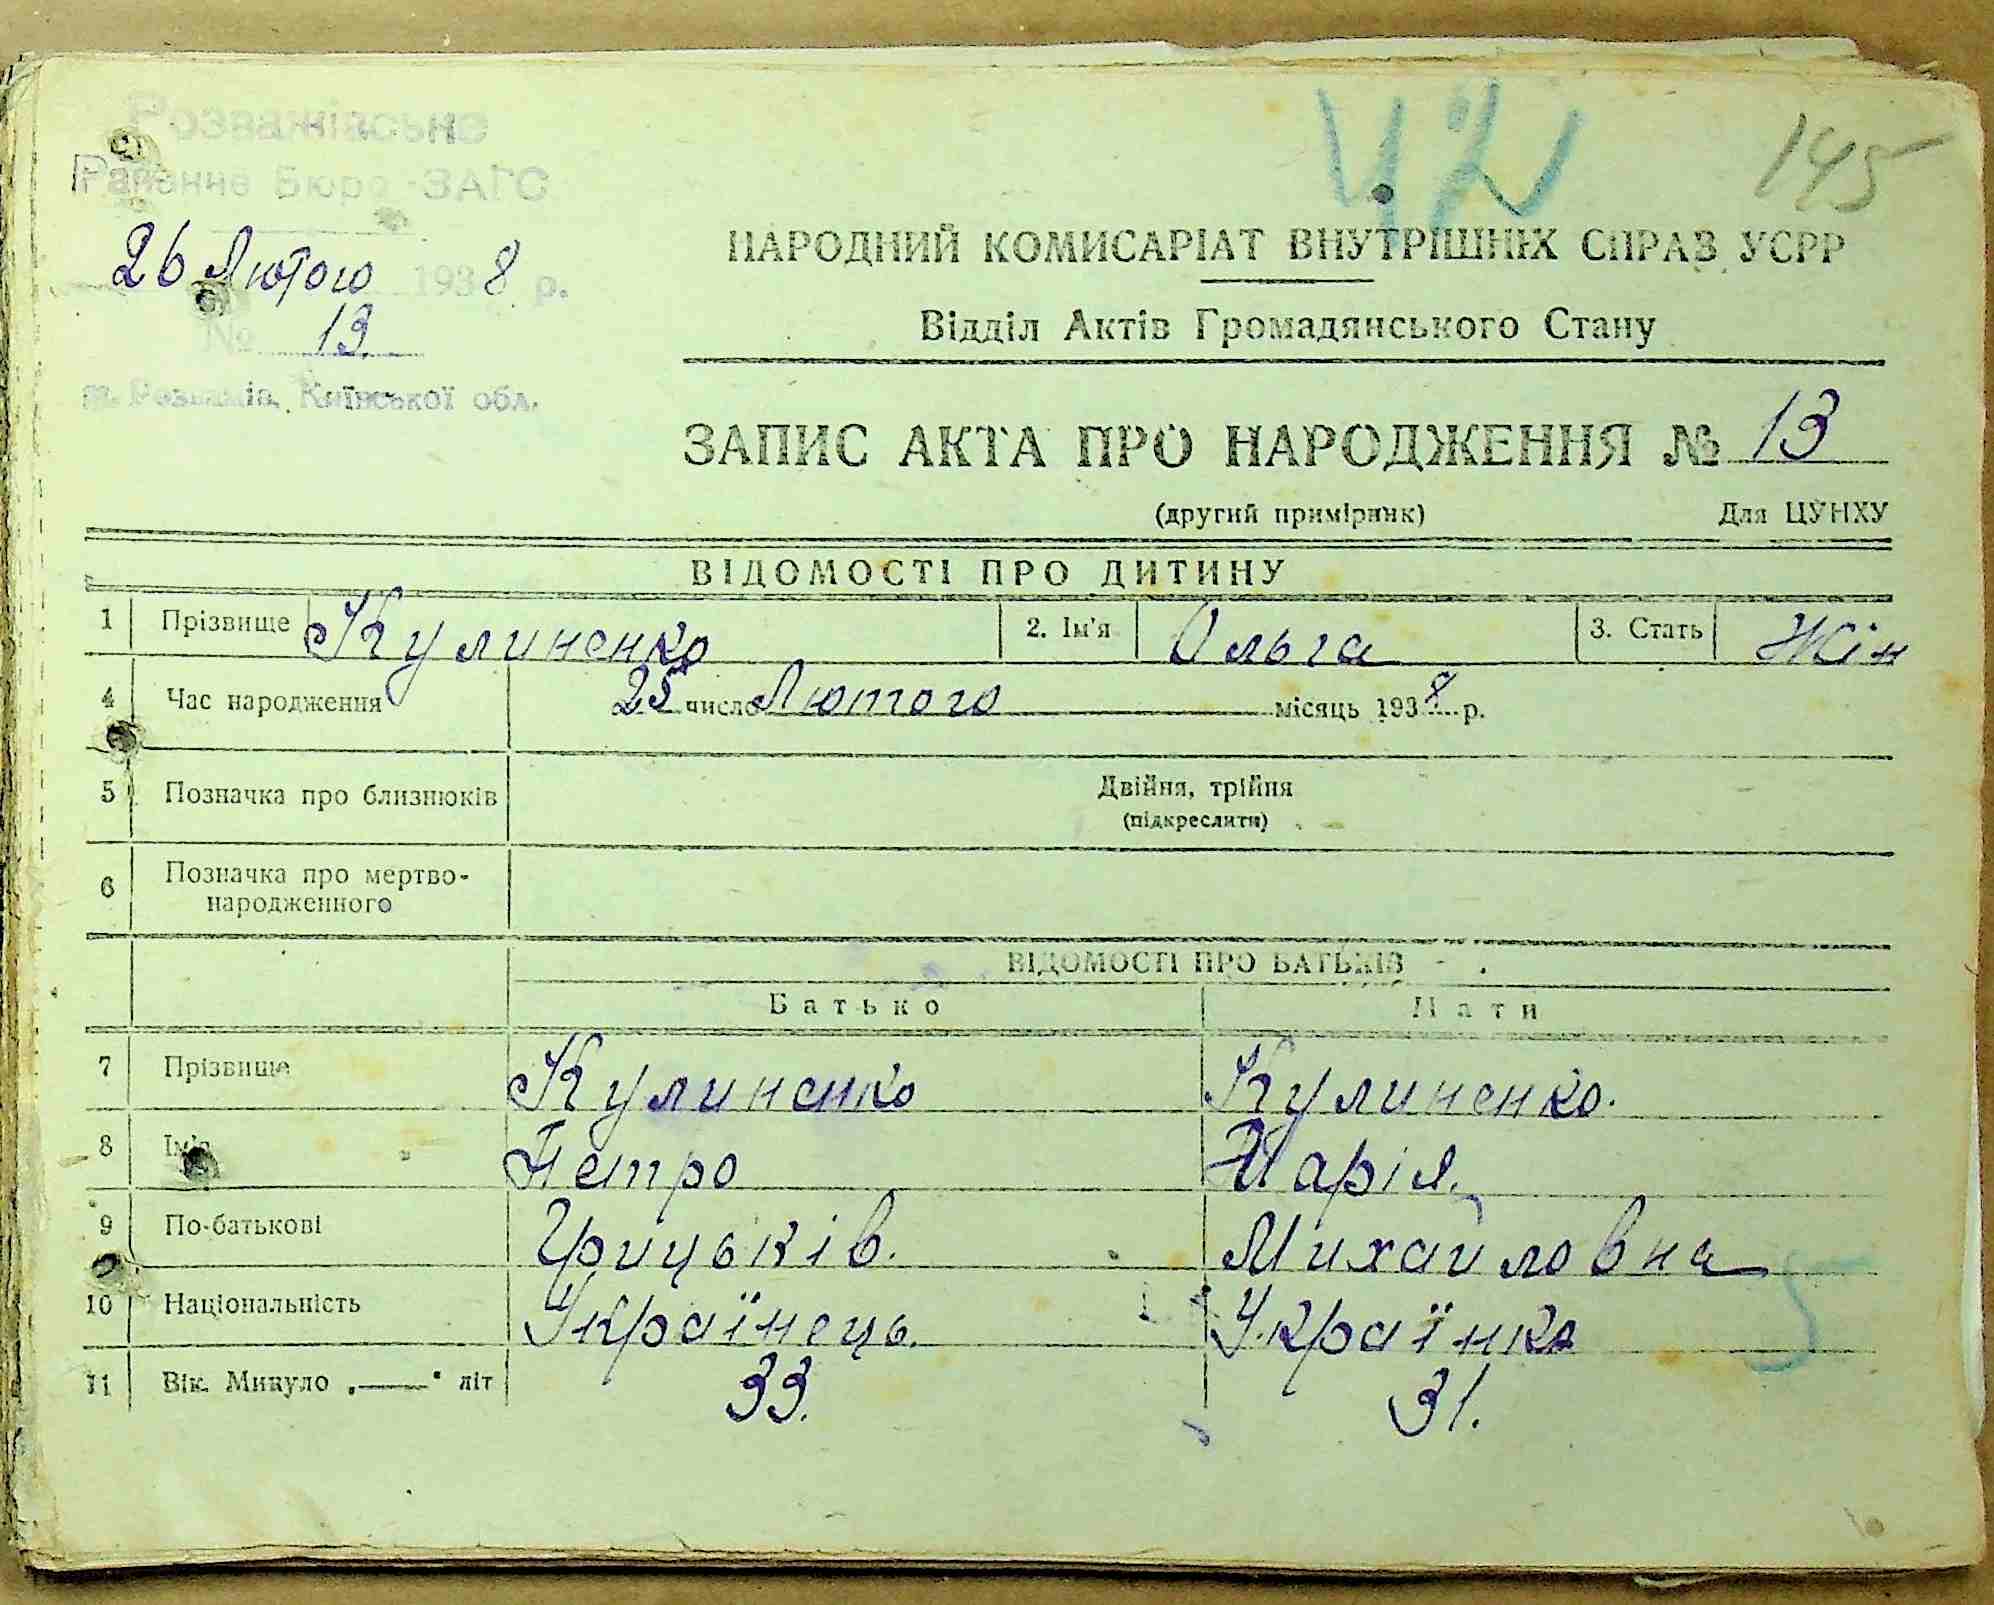 Розважівське
Районне Бюро ЗАГС
26 Лютого 1938 р.
№ 13.
м. Розважів, Київської обл.
42
145
НАРОДНИЙ КОМИСАРІАТ ВНУТРІШНІХ СПРАВ УСРР
Відділ Актів Громадянського Стану
ЗАПИС АКТА ПРО НАРОДЖЕННЯ № 13
(другий примірник) Для ЦУНХУ
ВІДОМОСТІ ПРО ДИТИНУ
1 Прізвище Кулиненко 2. Ім'я Ольга 3. Стать Жін
4 Час народження 25 число Лютого місяць 1938 р.
5 Позначка про близнюків Двійня, трійня
(підкреслити)
6 Позначка про мертво-
народженного
ВІДОМОСТІ ПРО БАТЬКІВ
Батько Мати
7 Прізвище Кулиненко Кулиненко.
8 Ім'я Петро Марія.
9 По-батькові Грицьків. Михайловна
10 Національність Українець. Українка
11 Вік. Минуло „——" літ 33. 31.